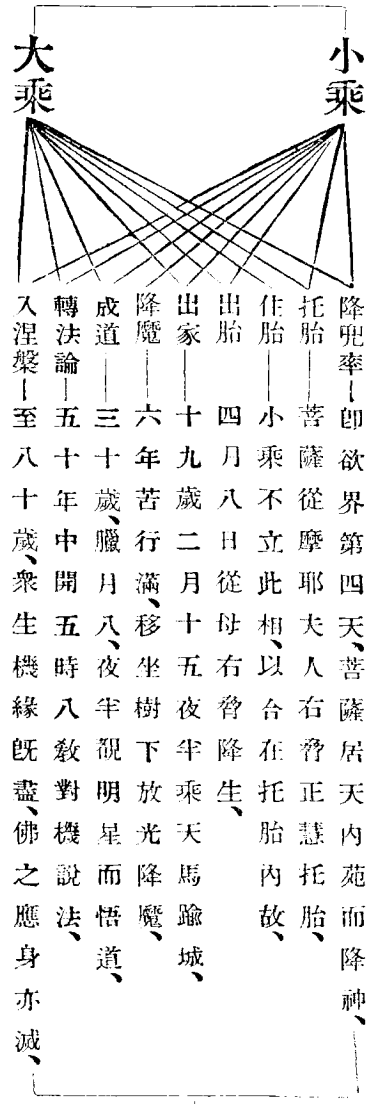 小乘
大乘
降兜率—卽欲界第四天、菩薩居天內苑而降神、
托胎—菩薩從摩耶夫人右脅正慧托胎、
住胎—小乘不立此相、以合在托胎內故、
出胎 四月八日從母右脅降生、
出家—十九歲二月十五夜半乘天馬踰城、
降魔—六年苦行滿、移坐樹下放光降魔、
成道—三十歲、臘月八、夜半覩明星而悟道、
轉法論—五十年中開五時八敎對機說法、
入涅槃—至八十歲、衆生機緣旣盡、佛之應身亦滅、